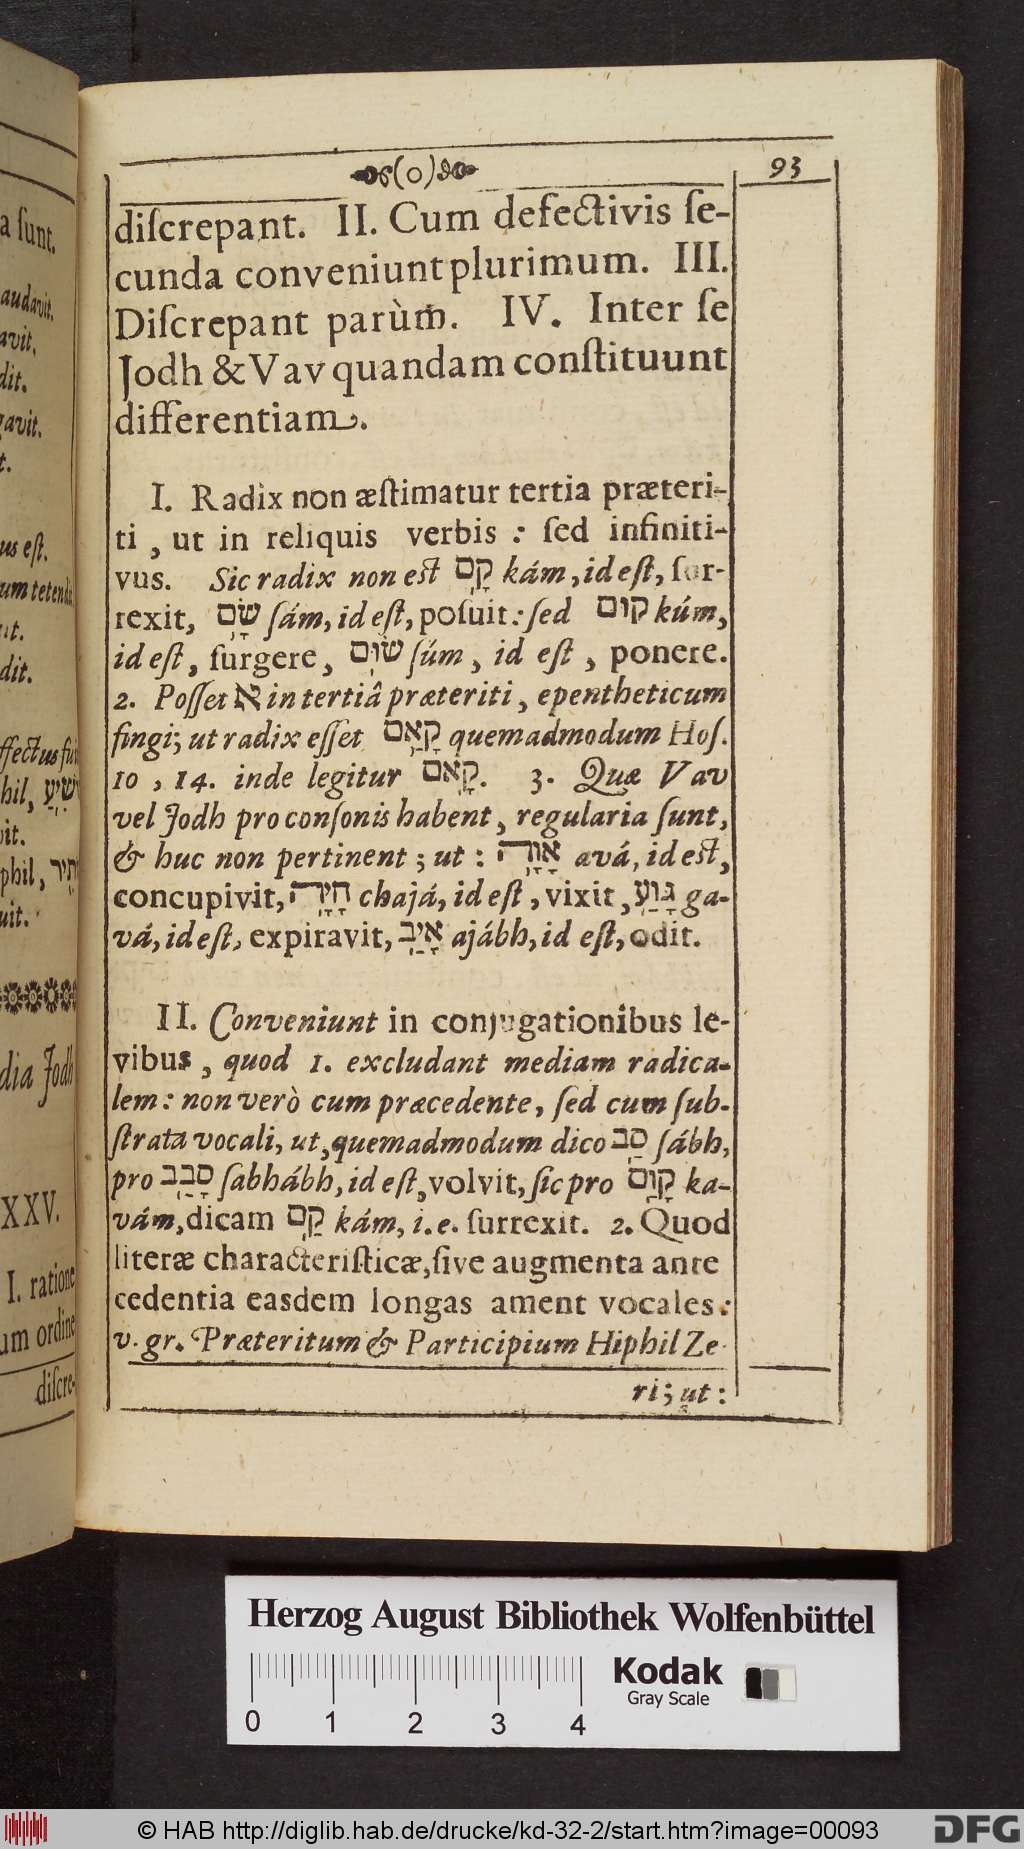 (o)
93
diſcrepant. II. Cum defectivis ſe-
cunda conveniunt plurimum. III.
Diſcrepant parùm. IV. Inter ſe
Jodh & Vav quandam conſtituunt
differentiam.
I. Radix non æſtimatur tertia præteri-
ti, ut in reliquis verbis: ſed infiniti-
vus. Sic radix non eſt קָם kám, id eſt, ſur-
rexit, שָׂם ſám, id eſt, poſuit: ſed קום kúm,
id eſt, ſurgere, שׂוּם ſúm, id eſt, ponere.
2. Poſſet א in tertiâ præteriti, epentheticum
fingi; ut radix eſſet קָאַם quemadmodum Hoſ.
10, 14. inde legitur קָאם. 3. Quæ Vav
vel Jodh pro conſonis habent, regularia ſunt,
& huc non pertinent; ut: אָוָה avá, id eſt,
concupivit, חָיָה chajá, id eſt, vixit, גָּוַע ga-
vá, id eſt, expiravit, אָיַב ajábh, id eſt, odit.
II. Conveniunt in conjugationibus le-
vibus, quod 1. excludant mediam radica-
lem: non verò cum præcedente, ſed cum ſub-
ſtrata vocali, ut, quemadmodum dico סַב ſábh,
pro סָבַב ſabhábh, id eſt, volvit, ſic pro קָוַם ka-
vám, dicam קַם kám, i. e. ſurrexit. 2. Quod
literæ characteriſticæ, ſive augmenta ante
cedentia easdem longas ament vocales:
v. gr. Præteritum & Participium Hiphil Ze-
ri; ut:
a ſunt.
audavit.
avit.
dit.
gavit.
t.
us eſt.
um tetendit
ut.
dit.
ffectus fui
hil,
vit.
phil,
uit.
dia Jodh
XXV.
I. ratione
um ordine
diſcre-
Herzog August Bibliothek Wolfenbüttel
Kodak
Gray Scale
0 1 2 3 4
© HAB http://diglib.hab.de/drucke/kd-32-2/start.htm?image=00093
DFG